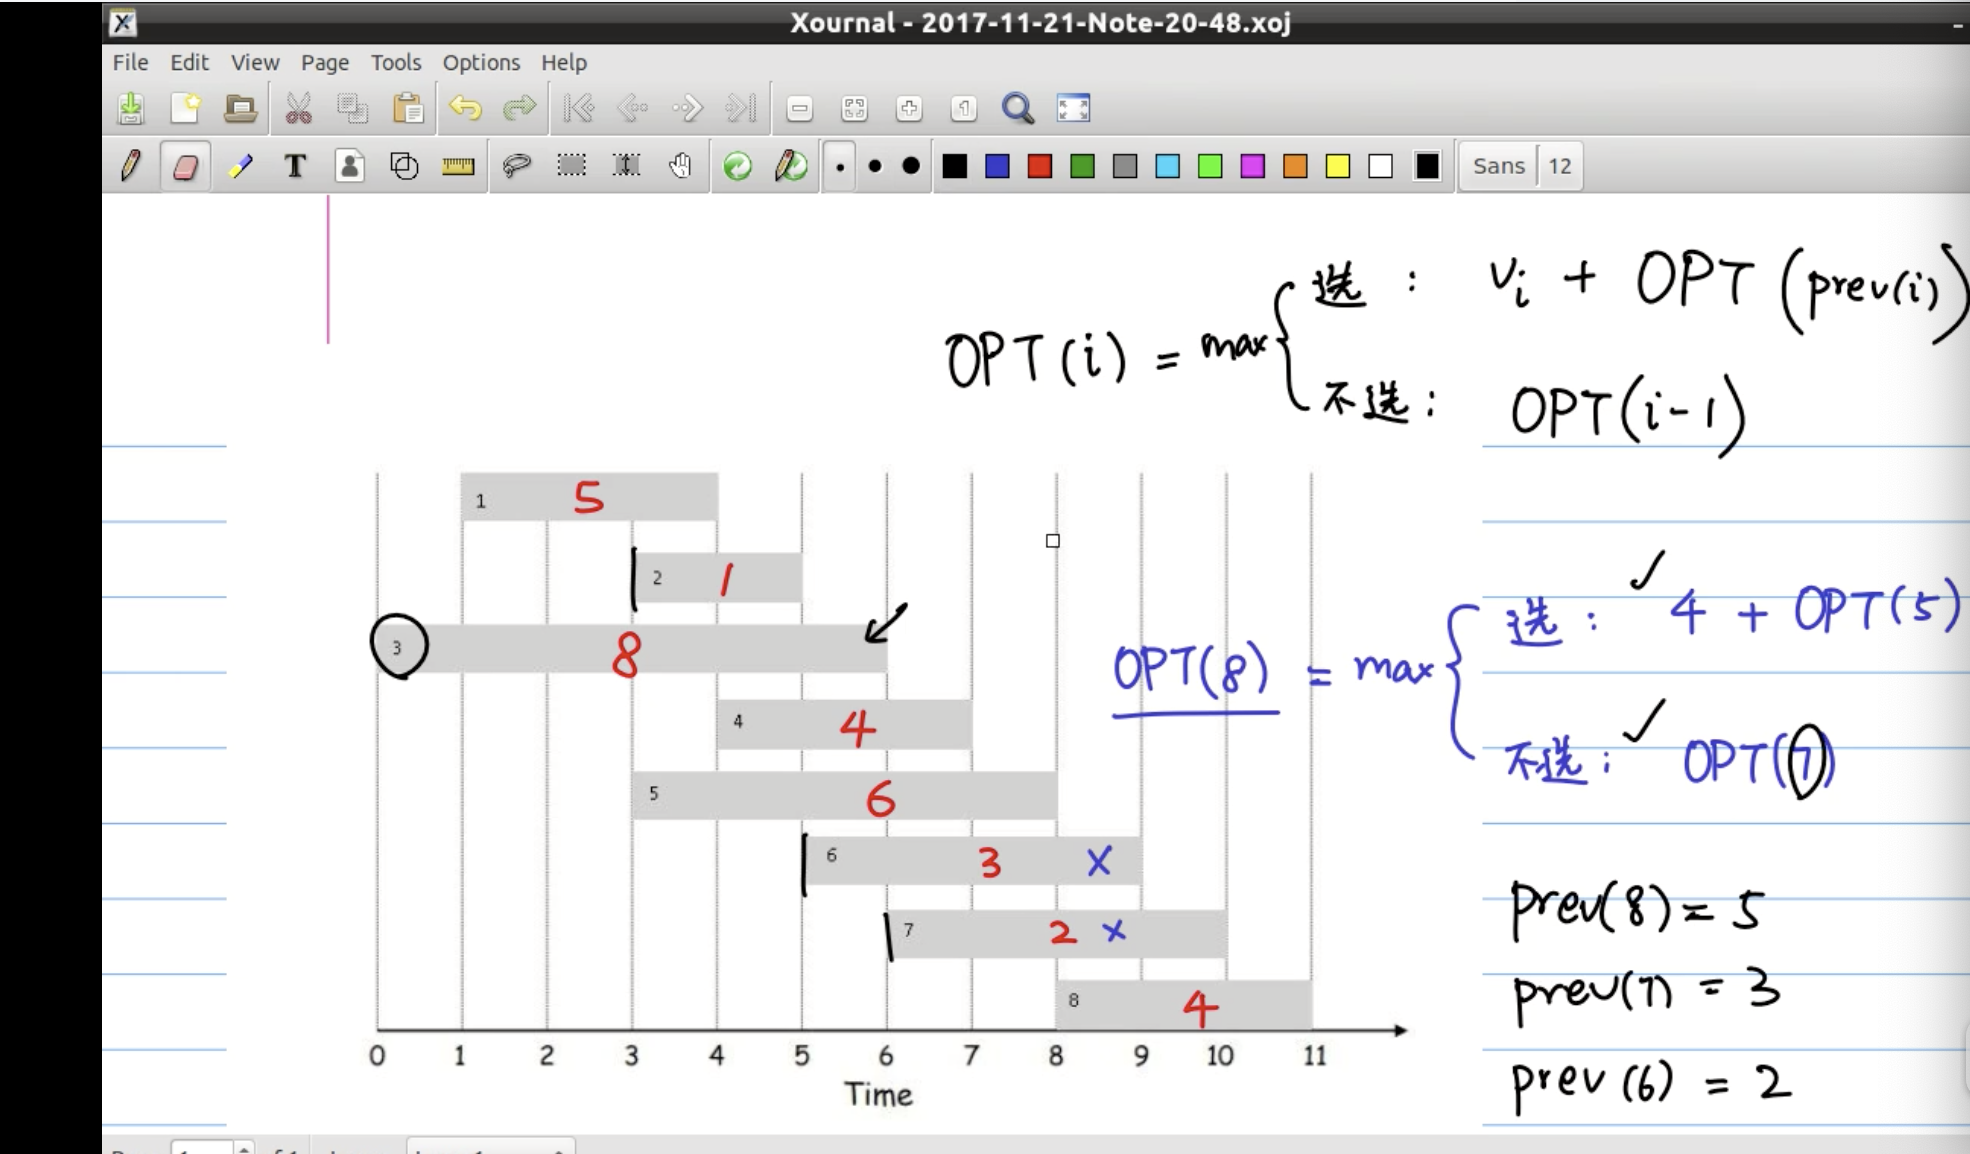 Xournal - 2017-11-21-Note-20-48.xoj
File Edit View Page Tools Options Help
T
Sans 12
OPT(i) = max
选： vi + OPT (prev(i))
不选： OPT(i-1)
1 5
2 1
3 8
4 4
5 6
6 3 X
7 2 x
8 4
0 1 2 3 4 5 6 7 8 9 10 11
Time
OPT(8) = max
选： ✓ 4 + OPT(5)
不选： ✓ OPT(7)
prev(8) = 5
prev(7) = 3
prev(6) = 2